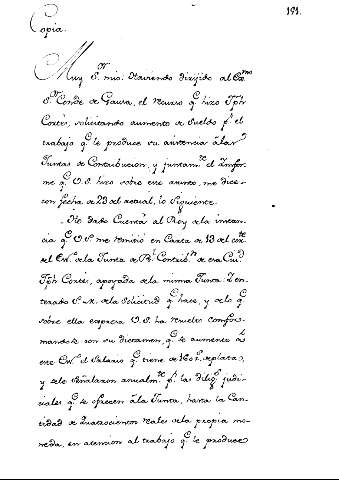 191.
Copia.
Muy S.r mio: Haviendo dirijido al Ex.mo
S.r Conde de Gausa, el recurso q.e hizo Jph
Cortés, solicitando aumento de Sueldo p.r el
trabajo q.e le produce su asistencia álas
Juntas de Contribucion, y juntam.te el Infor-
me q.e V.S. hizo sobre este asunto, me dice
con fecha de 23 del actual, lo siguiente.
He dado Cuenta al Rey de la instan-
cia q.e V.S. me remitió en Carta de 13 del cor.te
del de la Junta de R.l Contrib.n de esa Ciu.d
Jph Cortés, apoyada de la misma Junta: I en-
terado S.M. de la solicitud q.e hace, y de lo q.e
sobre ella expresa V.S. ha resuelto confor-
mandose con su dictamen, q.e se aumente á
este el Salario q.e tiene de 160 p.s de plata,
y se le señalaron anualm.te p.r las dilig.s judi-
ciales q.e se ofrecen ála Junta, hasta la Can-
tidad de Quatrocientos reales dela propia mo-
neda, en atencion al trabajo q.e le produce